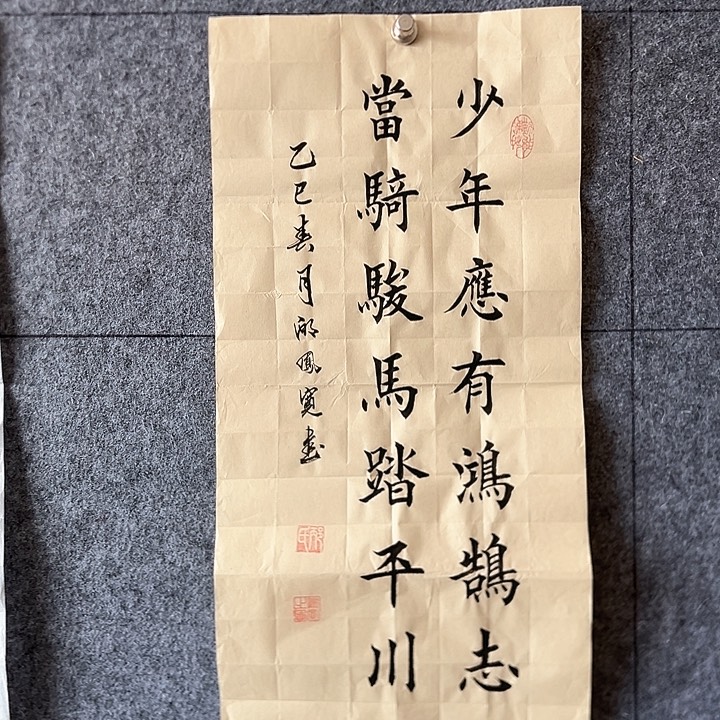 少年應有鴻鵠志
當騎駿馬踏平川
乙巳春月 鳳寬書